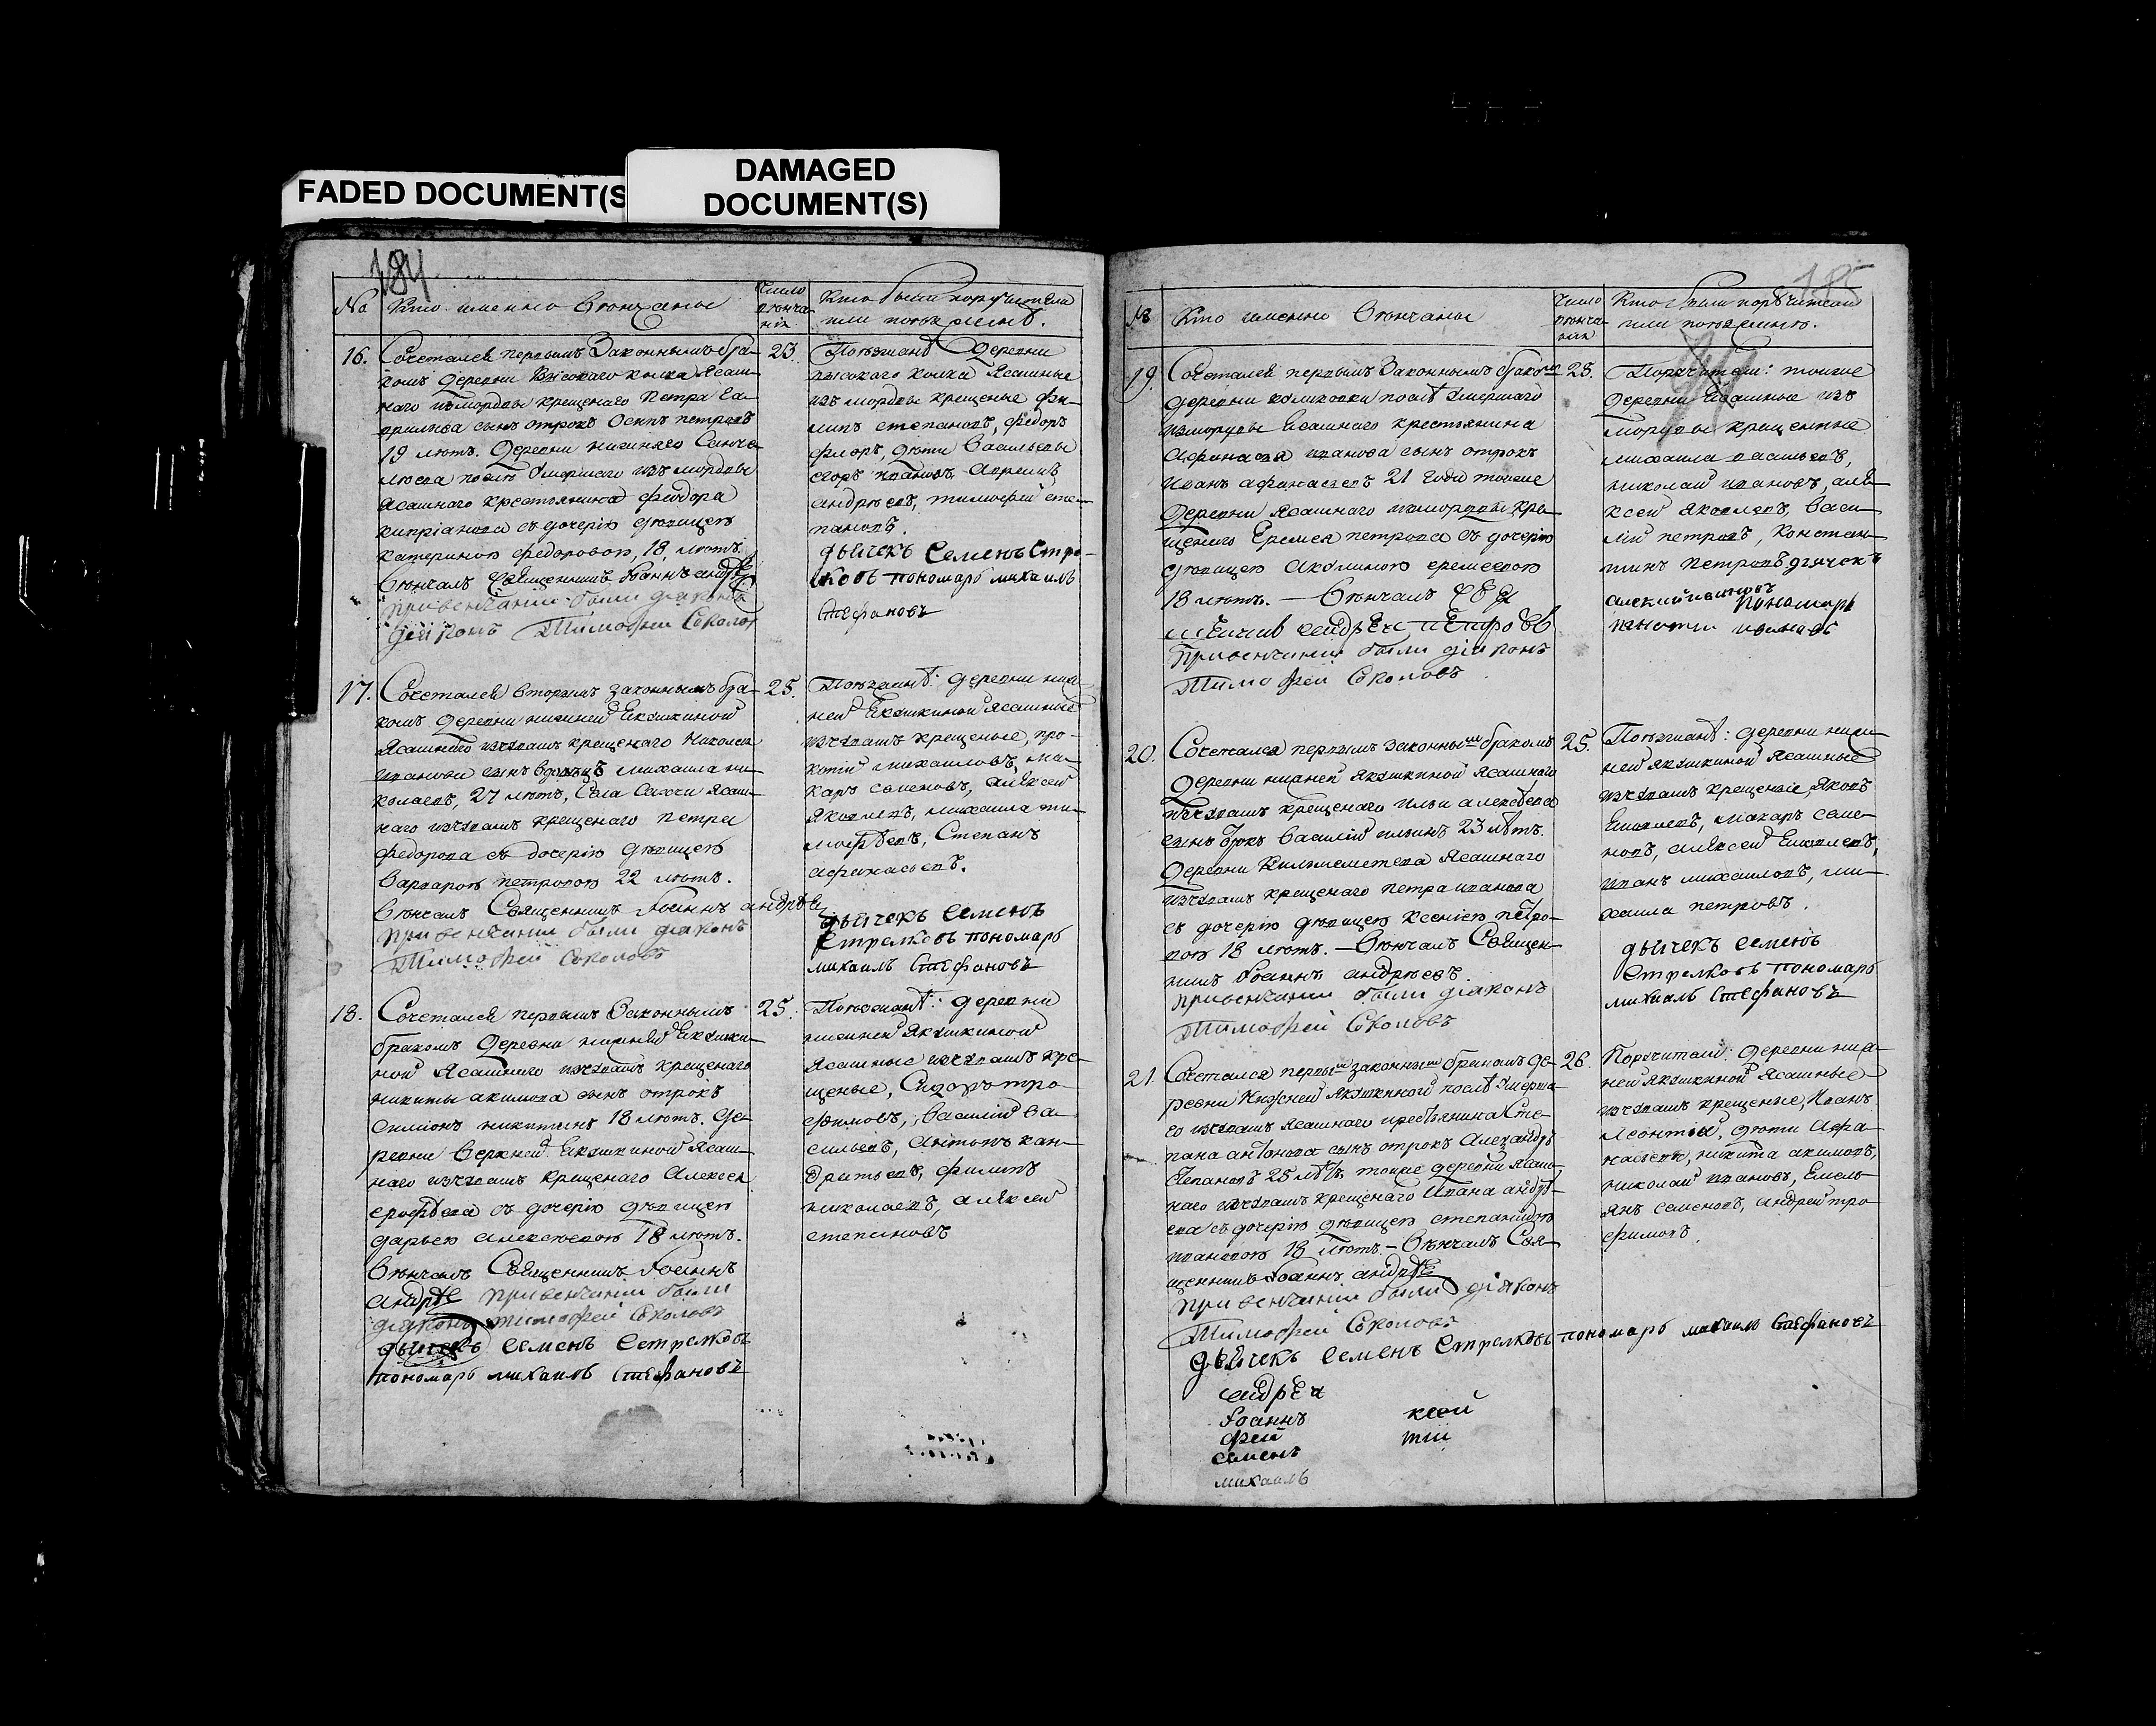 FADED DOCUMENT(S
DAMAGED
DOCUMENT(S)
184
№
Кто именно Венчаны
Число
венча-
нія
Кто были поручители
или поезжане.
16.
Сочетался первымъ Законнымъ бра-
комъ деревни Высокаго колка Ясаш-
наго изъ мордвы крещенаго Петра Га-
врилова сынъ отрокъ Осипъ петровъ
19 лѣтъ. Деревни нижняго Санче-
леева послѣ умершаго изъ мордвы
Ясашнаго крестьянина Федора
кипріанова съ дочерію дѣвицею
катериною федоровою, 18, лѣтъ.
Вѣнчалъ Священникъ Іоаннъ андре
при венчании были диаконъ
Тимофей Соколов
23.
Поѣзжанѣ Деревни
высокаго колка Ясашные
изъ мордвы крещеные фи-
липъ степановъ, федоръ
флоръ, дѣти Васильевы
егоръ ивановъ, Аврелій
андрѣевъ, тимофей сте-
пановъ.
дьячекъ Семенъ Стре-
лковъ пономарь михаилъ
Стефановъ
17.
Сочетался вторымъ законнымъ бра-
комъ Деревни нижней Екушкиной
Ясашнаго изъ чувашъ крещенаго Николая
иванова сынъ вдовецъ михаила ни-
колаевъ, 27 лѣтъ, Села Саночи Ясаш-
наго изъ чувашъ крещенаго петра
федорова съ дочерію дѣвицею
варварою петровою 22 лѣтъ.
Вѣнчалъ Священникъ Іоаннъ андрѣе
при венчании были диаконъ
Тимофей Соколовъ
25.
Поѣзжанѣ: деревни ниж-
ней Екушкиной Ясашные
изъ чувашъ крещеные, про-
копій михаиловъ, ма-
каръ семеновъ, алексей
Яковлевъ, михаила ти-
мофѣевъ, Степанъ
афанасьевъ.
дьячекъ Семенъ
Стрелковъ пономарь
михаилъ Стефановъ
18.
Сочетался первымъ Законнымъ
бракомъ Деревни нижней Екушки-
ной Ясашнаго изъ чувашъ крещенаго
никиты акимова сынъ отрокъ
Симіонъ никитинъ 18 лѣтъ. Де-
ревни верхней Екушкиной Ясаш-
наго изъ чувашъ крещенаго Алексея
ерофѣева съ дочерію дѣвицею
дарьею алексѣевою 18 лѣтъ.
Вѣнчалъ Священникъ Іоаннъ
андрѣе при венчании были
диаконъ тимофей Соколовъ
дьячекъ Семенъ Стрелковъ
пономарь михаилъ Стефановъ
25.
Поѣзжанѣ: деревни
нижней Якушкиной
Ясашные изъ чувашъ кре-
щеные, Сидоръ тро-
фимовъ, василій ва-
сильевъ, антонъ кан-
дратьевъ, филипъ
николаевъ, алексей
степановъ
185
№
Кто именно Вѣнчаны
Число
венча-
нія
Кто были поручители
или поезжане.
19.
Сочетался первымъ Законнымъ бракомъ
деревни послѣ умершаго
изъ мордвы Ясашнаго крестьянина
Афанасія иванова сынъ отрокъ
Иванъ афанасьевъ 21 года тоеже
деревни Ясашнаго изъ мордвы кре-
щенаго Еремея петрова съ дочерію
дѣвицею Акулиною еремеевою
18 лѣтъ. — Вѣнчалъ
андреи петровъ
При венчании были диаконъ
Тимофей Соколовъ
25.
Поручители: тоеже
деревни Ясашные изъ
мордвы крещенные
михаила васильевъ,
николай ивановъ, але-
ксей яковлевъ, васи-
лій петровъ, констан-
тинъ петровъ дьячокъ
алексий ивановъ
пономарь
20.
Сочетался первымъ законнымъ бракомъ
Деревни нижней якушкиной Ясашнаго
изъ чувашъ крещенаго Ильи алексѣева
сынъ отрокъ василій ильинъ 23 лѣтъ.
Деревни Ясашнаго
изъ чувашъ крещенаго петра иванова
съ дочерію дѣвицею ксеніею петро-
вою 18 лѣтъ. — Вѣнчалъ Священ-
никъ Іоаннъ андрѣевъ
при венчании были диаконъ
Тимофей Соколовъ
25.
Поѣзжанѣ: деревни ниж-
ней якушкиной Ясашные
изъ чувашъ крещеніе, Яковъ
Яковлевъ, макаръ семе-
новъ, алексей Яковлевъ,
иванъ михаиловъ, ми-
хаила петровъ.
дьячекъ Семенъ
Стрелковъ пономарь
михаилъ Стефановъ
21.
Сочетался первымъ законнымъ бракомъ де-
ревни Нижней Якушкиной послѣ умерша-
го изъ чувашъ Ясашнаго крестьянина Сте-
пана антонова сынъ отрокъ Александръ
Степановъ 25 лѣтъ тоеже деревни Ясаш-
наго изъ чувашъ крещенаго Ивана андрѣ-
ева съ дочерію дѣвицею степанидою
ивановою 18 лѣтъ. — Вѣнчалъ Свя-
щенникъ Іоаннъ андрѣе
при венчании были диаконъ
Тимофей Соколовъ
дьячекъ Семенъ Стрелковъ пономарь михаилъ Стефановъ
26.
Поручители: деревни ниж-
ней якушкиной Ясашные
изъ чувашъ крещеные, Иванъ
Леонтій, дѣти Афа-
насьевы, никита акимовъ,
николай ивановъ, Емель-
янъ семеновъ, андрей тро-
фимовъ.
андреи
Іоаннъ
ксей
фей
тій
семенъ
михаилъ